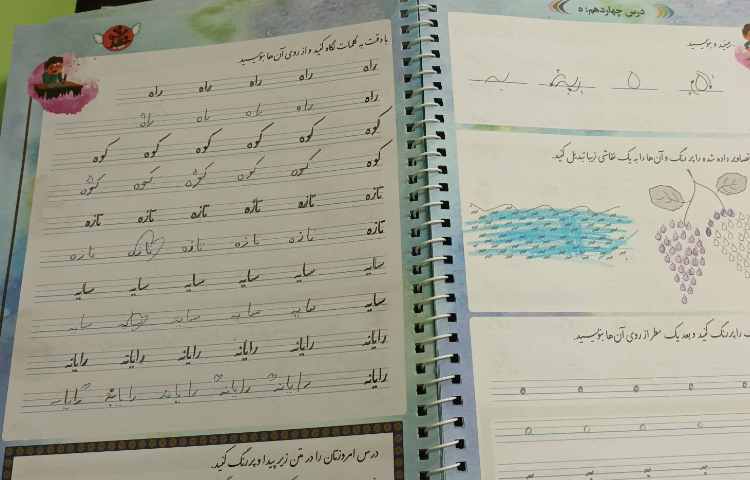 با دقت به کلمات نگاه کنید و از روی آن‌ها بنویسید
راه راه راه راه راه
راه راه راه راه راه
کوه کوه کوه کوه کوه کوه
کوه کوه کوه کوه کوه کوه
تازه تازه تازه تازه تازه تازه
تازه تازه تازه تازه تازه تازه
سایه سایه سایه سایه سایه سایه
سایه سایه سایه سایه سایه سایه
رایانه رایانه رایانه رایانه رایانه رایانه
رایانه رایانه رایانه رایانه رایانه رایانه
درس امروزتان را در متن زیر پیدا و پررنگ کنید.
درس چهاردهم: ه
و بنویسید
تصاویر داده شده را پر رنگ و آن‌ها را به یک نقاشی زیبا تبدیل کنید.
را پر رنگ کنید و بعد یک سطر از روی آن‌ها بنویسید.
ه ه ه ه ه
ه ه ه ه